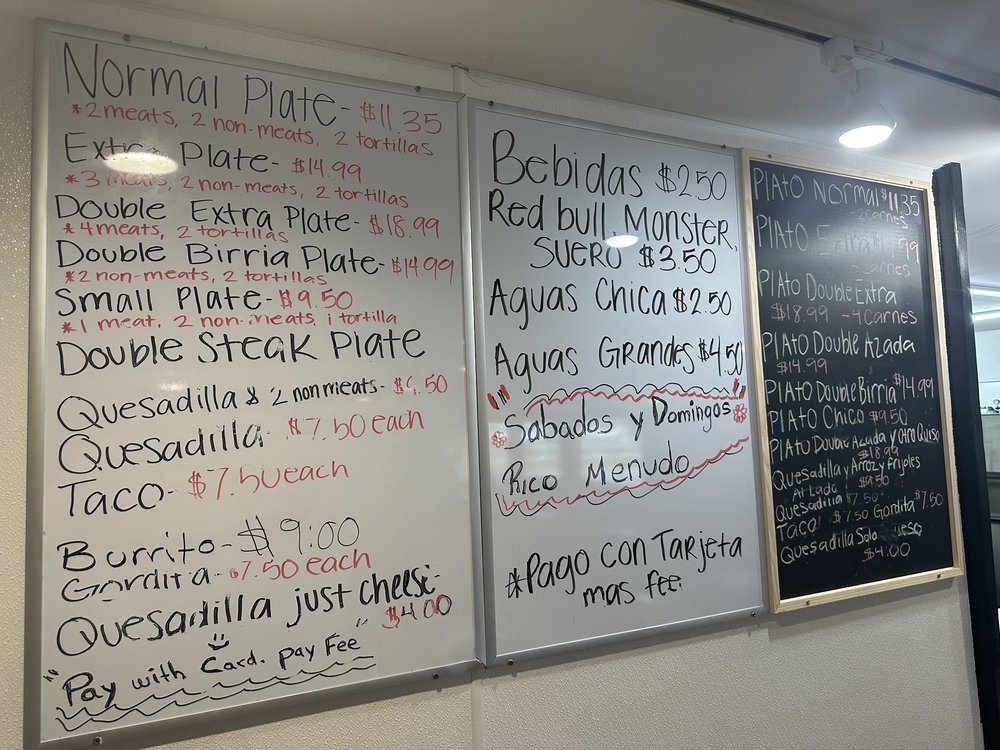 Normal Plate- $11.35
*2 meats, 2 non-meats, 2 tortillas
Extra Plate- $14.99
*3 meats, 2 non-meats, 2 tortillas
Double Extra Plate- $18.99
*4 meats, 2 tortillas
Double Birria Plate- $14.99
*2 non-meats, 2 tortillas
Small Plate- $9.50
*1 meat, 2 non-meats, 1 tortilla
Double Steak Plate
Quesadilla & 2 non meats- $9.50
Quesadilla- $7.50 each
Taco- $7.50 each
Burrito- $9:00
Gordita- $7.50 each
Quesadilla just cheese-
$4.00
"Pay with Card. pay Fee"
Bebidas $2.50
Red bull, Monster,
Suero $3.50
Aguas Chica $2.50
Aguas Grandes $4.50
Sabados y Domingos
Rico Menudo
*Pago con Tarjeta
mas fee.
Plato Normal $11.35
-2 Carnes
Plato Extra $14.99
Carnes
Plato Double Extra
$18.99 -4 Carnes
Plato Double Azada
$14.99
Plato Double Birria $14.99
Plato Chico $9.50
Plato Double Azada y Otro Queso
$18.99
Quesadilla y Arroz y Frijoles
Al Lado $9.50
Quesadilla $7.50
Taco $7.50 Gordita $7.50
Quesadilla Solo Queso
$4.00